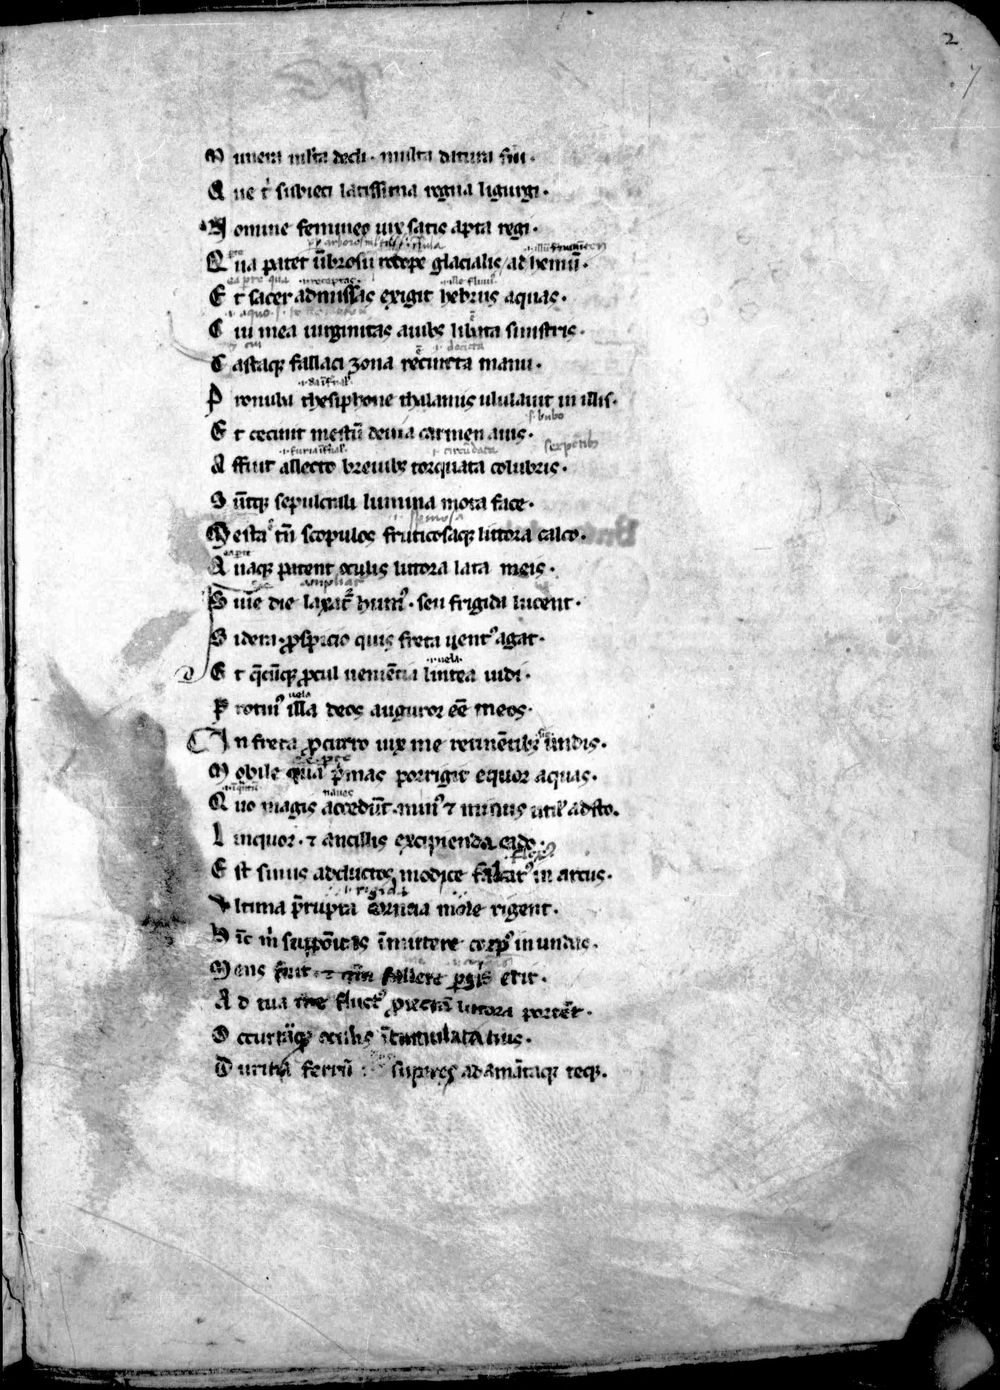 2
7
M unera multa dedi · multa datura fui ·
Q ue t̉ subieci latissima regna ligurgi ·
N omine femineo uix satis apta regi ·
Q ua patet ūbrosū rodope glacialis ad hemū ·
E t sacer admissas exigit hebrus aquas ·
C ui mea uirginitas auibꝫ libata sinistris ·
C astaqꝫ fallaci zona recincta manu ·
P ronuba thesiphone thalamis ululauit in illis ·
s · bubo
E t cecinit mestū deuia carmen auis ·
i · circūdata
A ffuit allecto breuibꝫ torquata colubris ·
S ūtqꝫ sepulcrali lumina mota face ·
M esta tn̄ scopulos fruticosaqꝫ littora calco ·
Q uaqꝫ patent oculis littora lata meis ·
S iue die laxat̉ humꝰ · seu frigida lucent ·
S idera · ꝓspicio quis freta uentꝰ agat ·
· uela ·
E t q̄cūqꝫ ꝓcul ueniētia lintea uidi ·
uela
P rotinꝰ illa deos auguror eē meos ·
I n freta ꝓcurro uix me retinētibꝫ undis ·
M obile qua p̄mas porrigit equor aquas ·
naues
Q uo magis accedūt · minꝰ ⁊ minus utilꝰ adsto ·
L inquor · ⁊ ancillis excipienda cado ·
E st sinus adductos modice falcatꝰ in arcus ·
· rigida
V ltima p̄rupta cornua mole rigent ·
H īc m̉ suppōitas īmittere corpꝰ in undas ·
M ens fuit · ⁊ erit ·
A d tua me fluctꝰ ꝓiectā littora portēt ·
O ccurrāqꝫ oculis ītumulata tuis ·
D uritia ferrū supes adamātaqꝫ teqꝫ ·